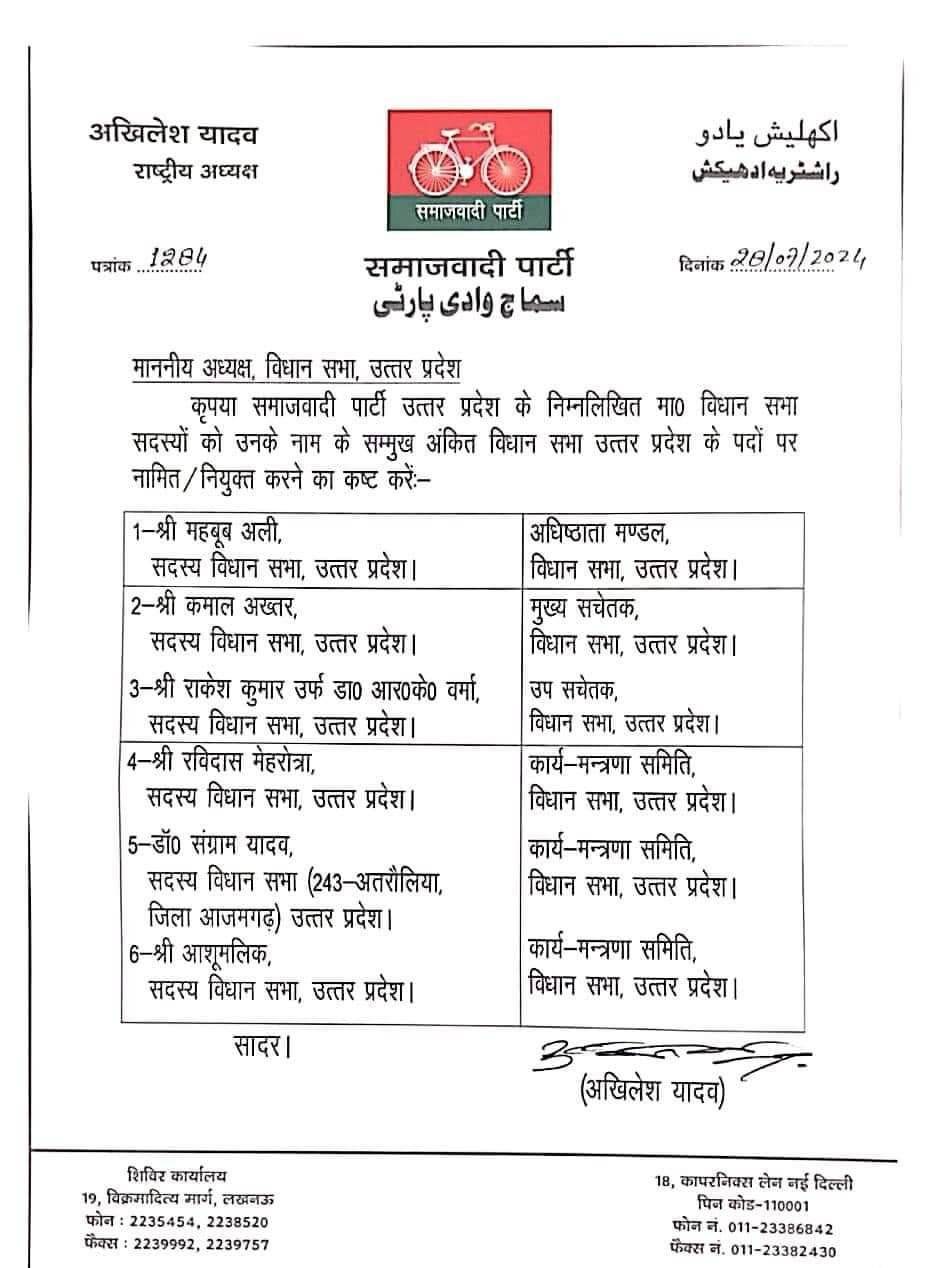 अखिलेश यादव
राष्ट्रीय अध्यक्ष
समाजवादी पार्टी
اکھلیش یادو
راشٹریہ ادھیکش
पत्रांक 1284
समाजवादी पार्टी
سماج وادی پارٹی
दिनांक 28/07/2024
माननीय अध्यक्ष, विधान सभा, उत्तर प्रदेश
कृपया समाजवादी पार्टी उत्तर प्रदेश के निम्नलिखित मा0 विधान सभा
सदस्यों को उनके नाम के सम्मुख अंकित विधान सभा उत्तर प्रदेश के पदों पर
नामित/नियुक्त करने का कष्ट करें:–
1–श्री महबूब अली,
सदस्य विधान सभा, उत्तर प्रदेश।
अधिष्ठाता मण्डल,
विधान सभा, उत्तर प्रदेश।
2–श्री कमाल अख्तर,
सदस्य विधान सभा, उत्तर प्रदेश।
मुख्य सचेतक,
विधान सभा, उत्तर प्रदेश।
3–श्री राकेश कुमार उर्फ डा0 आर0के0 वर्मा,
सदस्य विधान सभा, उत्तर प्रदेश।
उप सचेतक,
विधान सभा, उत्तर प्रदेश।
4–श्री रविदास मेहरोत्रा,
सदस्य विधान सभा, उत्तर प्रदेश।
कार्य–मन्त्रणा समिति,
विधान सभा, उत्तर प्रदेश।
5–डॉ0 संग्राम यादव,
सदस्य विधान सभा (243–अतरौलिया,
जिला आजमगढ़) उत्तर प्रदेश।
कार्य–मन्त्रणा समिति,
विधान सभा, उत्तर प्रदेश।
6–श्री आशूमलिक,
सदस्य विधान सभा, उत्तर प्रदेश।
कार्य–मन्त्रणा समिति,
विधान सभा, उत्तर प्रदेश।
सादर।
(अखिलेश यादव)
शिविर कार्यालय
19, विक्रमादित्य मार्ग, लखनऊ
फोन : 2235454, 2238520
फैक्स : 2239992, 2239757
18, कापरनिक्स लेन नई दिल्ली
पिन कोड-110001
फोन नं. 011-23386842
फैक्स नं. 011-23382430